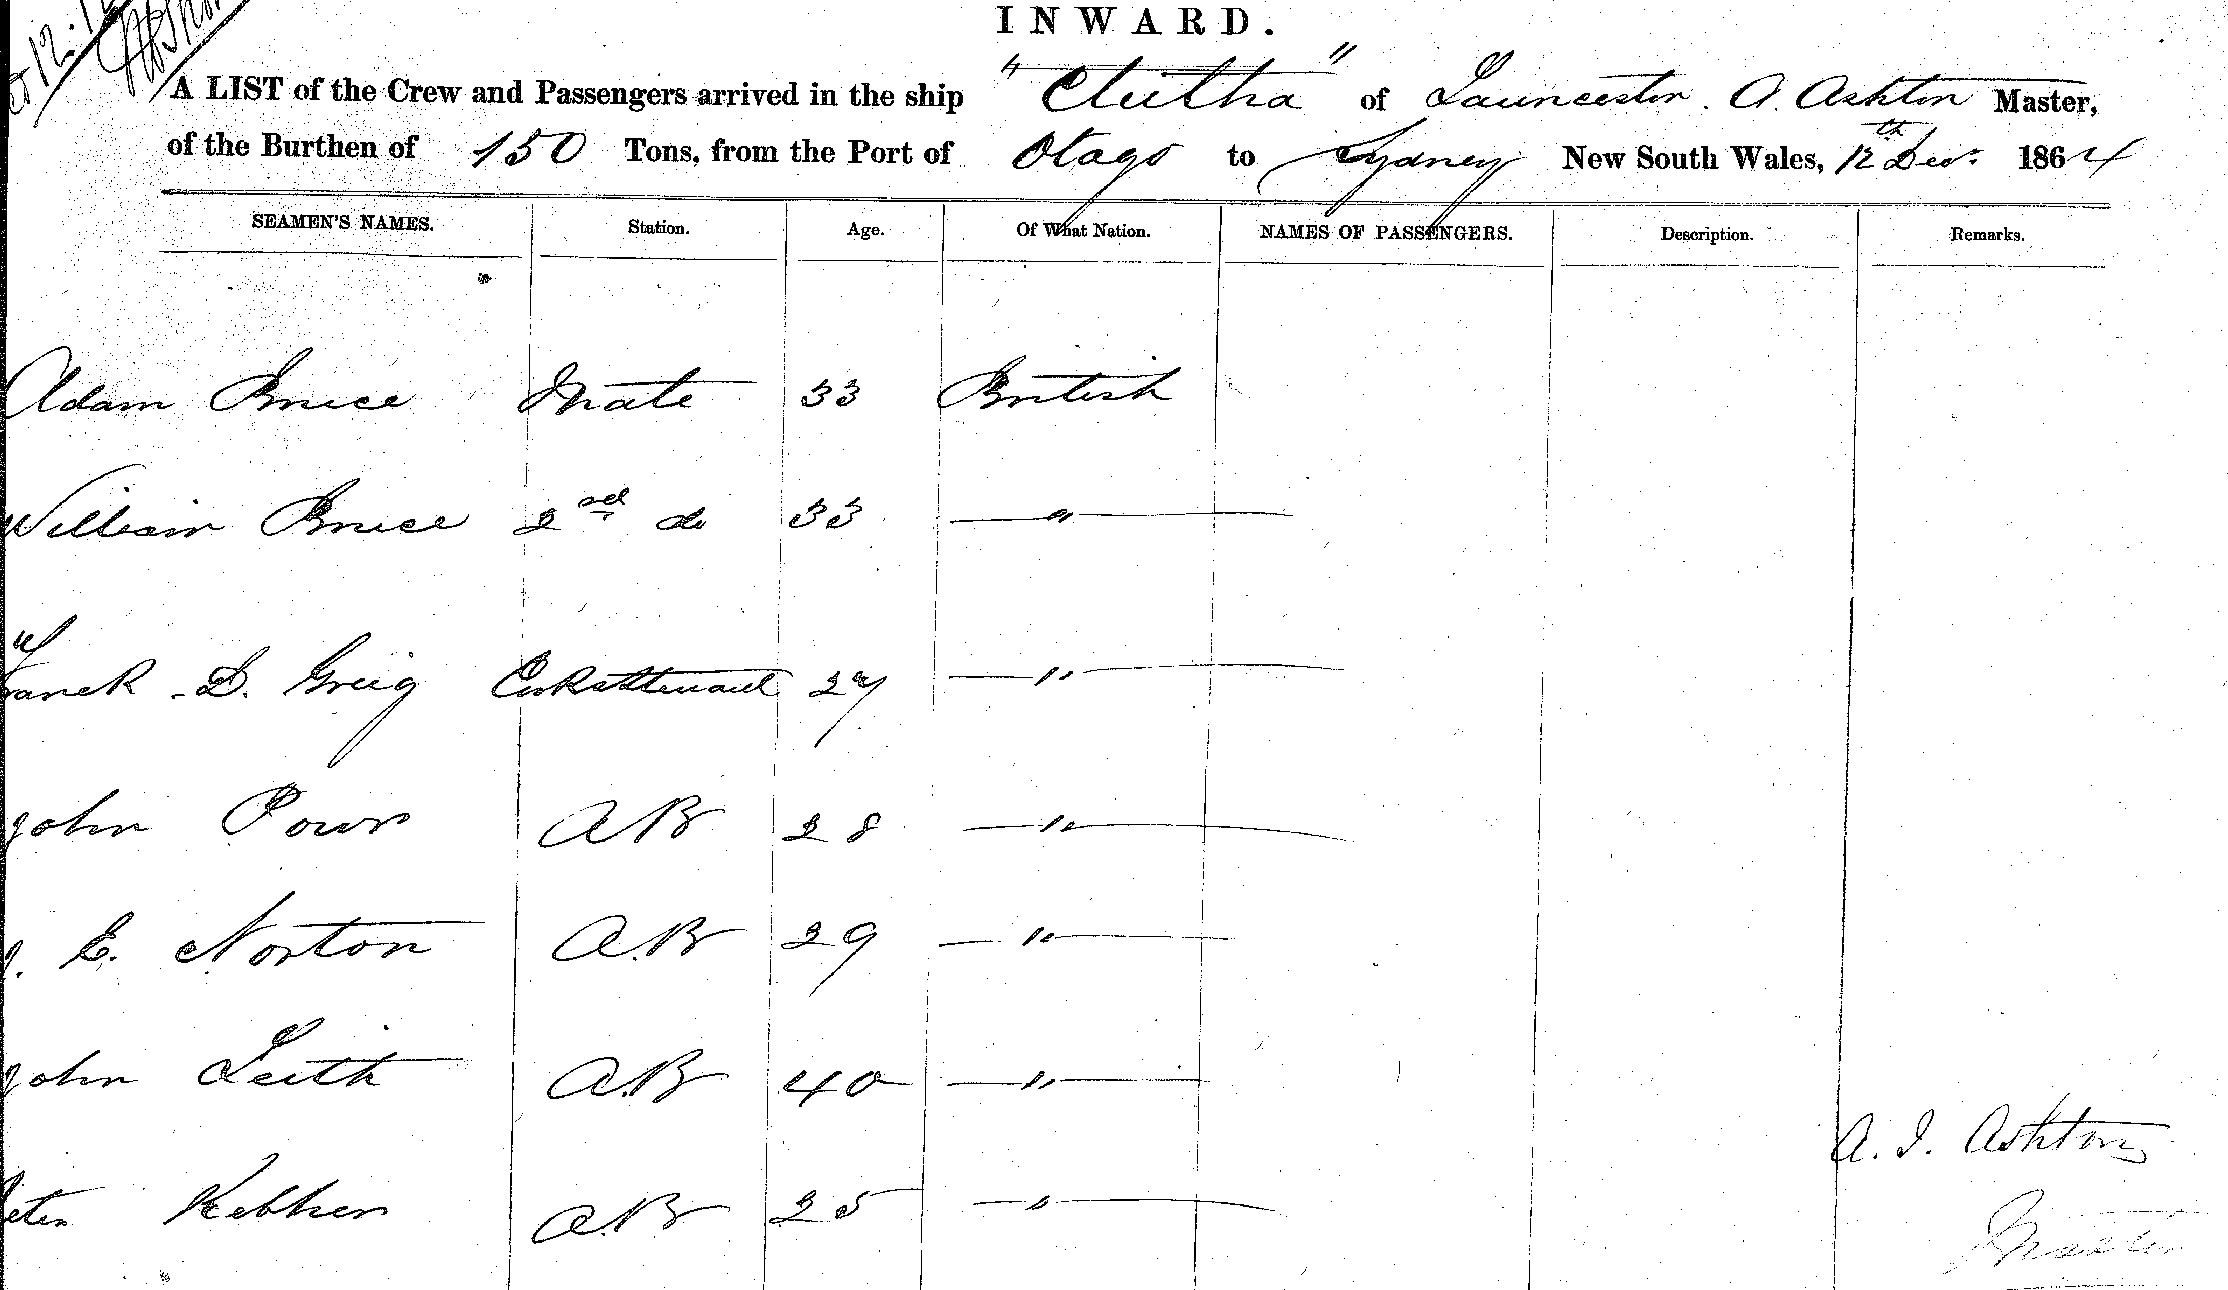 12.12
INWARD.
A LIST of the Crew and Passengers arrived in the ship "Clutha" of Launceston. A. Ashton Master,
of the Burthen of 150 Tons, from the Port of Otago to Sydney New South Wales, 12th Decr. 1864
SEAMEN'S NAMES. Station. Age. Of What Nation. NAMES OF PASSENGERS. Description. Remarks.
Adam Bruce Mate 33 British
William Bruce 2nd do 33 "
D. Greig 27 "
John AB 28 "
J. E. Norton A.B 29 "
John Leith A.B 40 "
A. I. Ashton
Peter A.B 25 "
Master